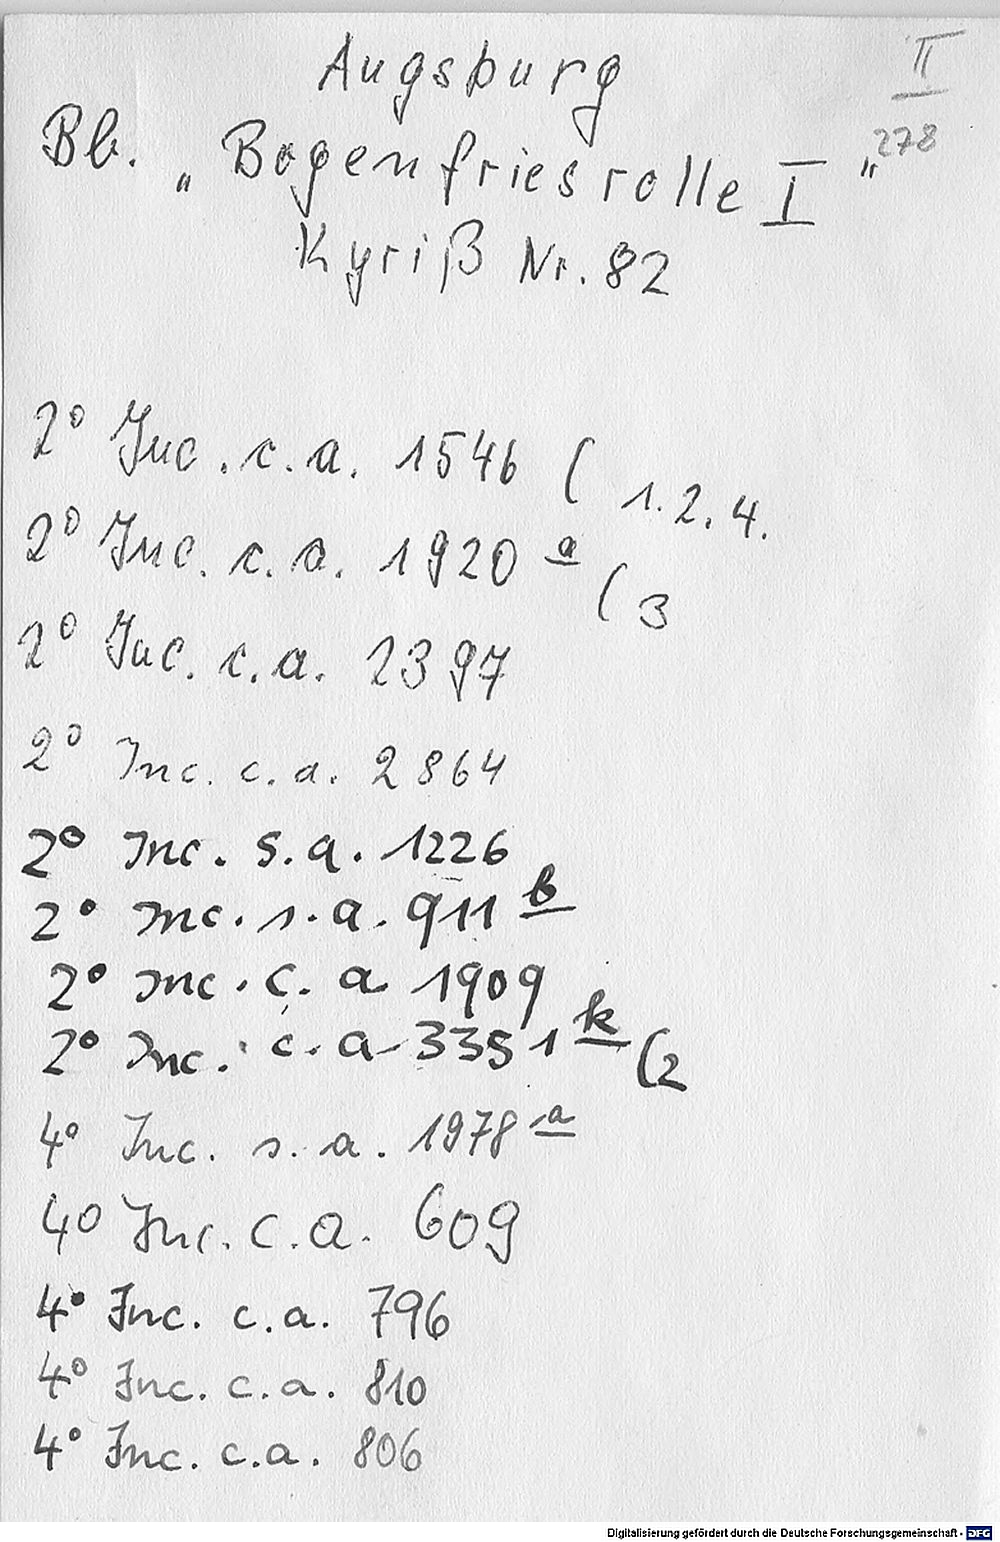 Augsburg
II
278
Bb. „Bogenfriesrolle I"
Kyriß Nr. 82
2° Inc. c.a. 1546 (1.2.4.
2° Inc. c.a. 1920 a (3
2° Inc. c.a. 2397
2° Inc. c.a. 2864
2° Inc. s.a. 1226
2° Inc. s.a. 911 b
2° Inc. c.a 1909
2° Inc. c.a 3351 k (2
4° Inc. s.a. 1978 a
4° Inc. c.a. 609
4° Inc. c.a. 796
4° Inc. c.a. 810
4° Inc. c.a. 806
Digitalisierung gefördert durch die Deutsche Forschungsgemeinschaft - DFG